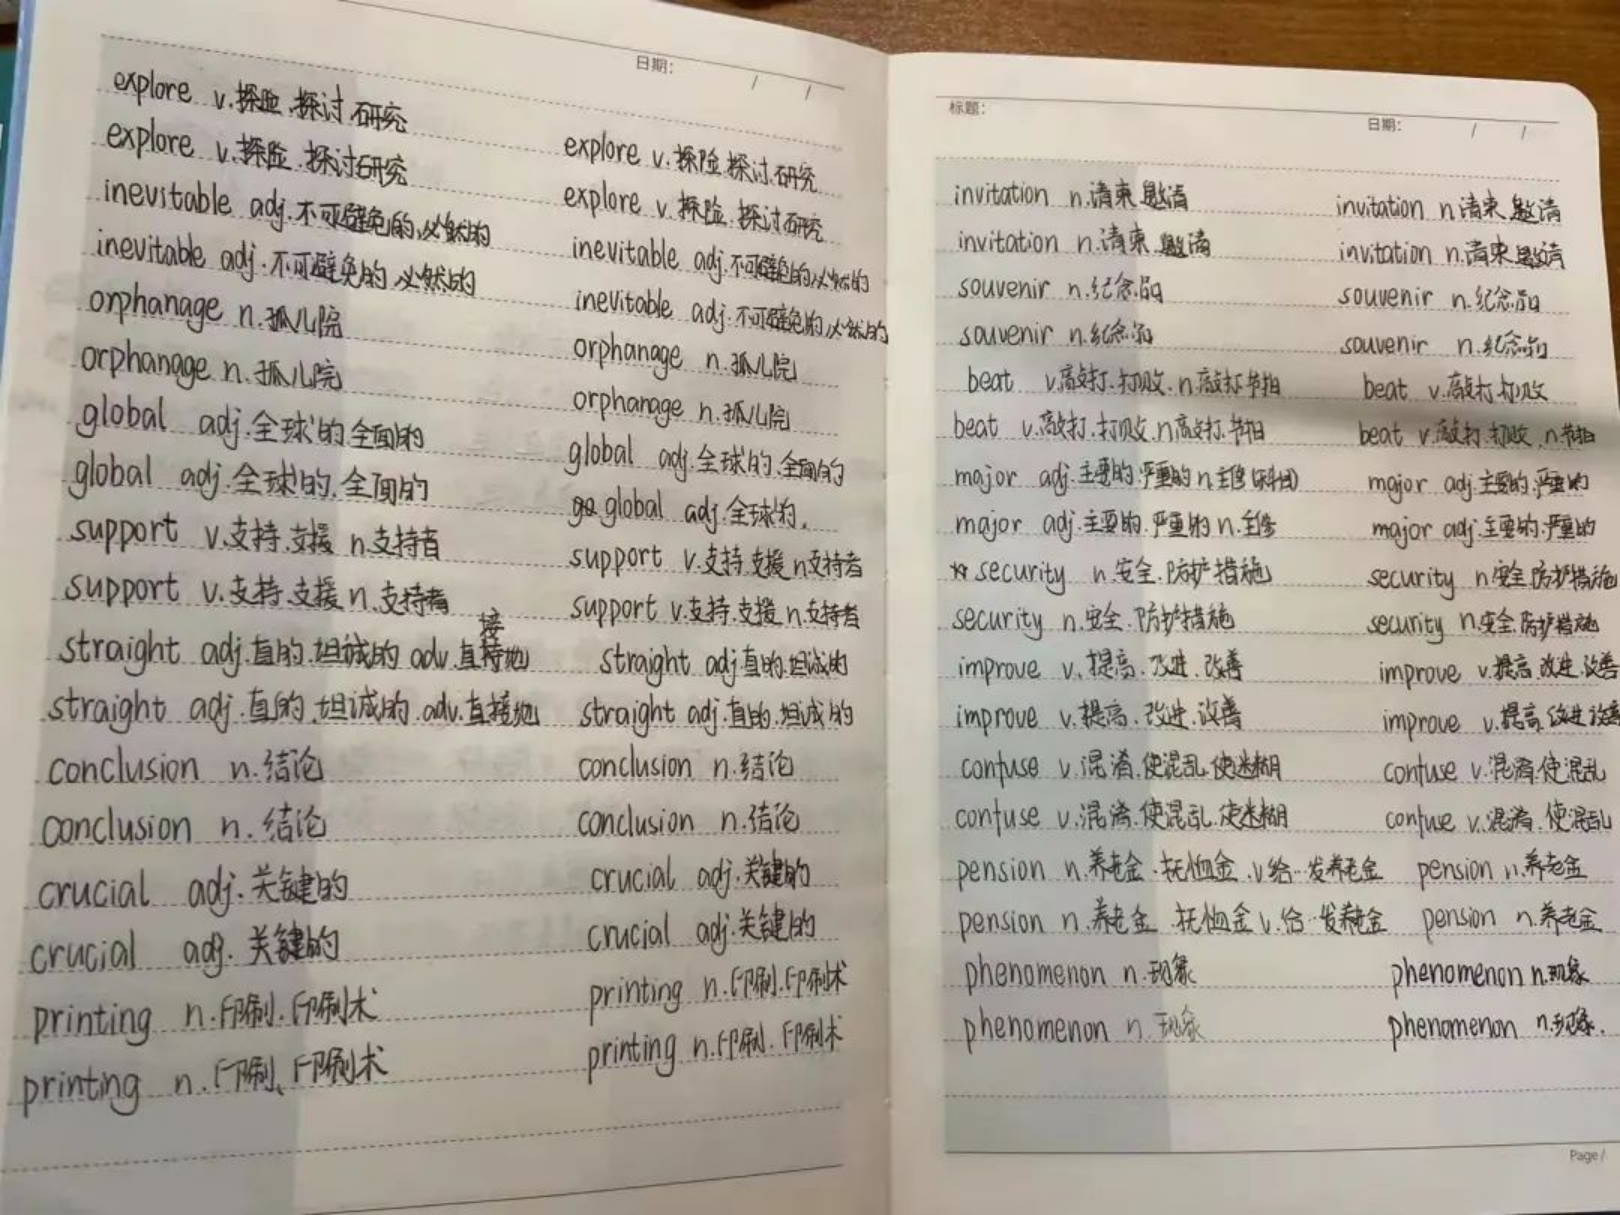 日期: / /
explore v.探险.探讨.研究
explore v.探险.探讨研究
inevitable adj.不可避免的.必然的
inevitable adj.不可避免的.必然的
orphanage n.孤儿院
orphanage n.孤儿院
global adj.全球的.全面的
global adj.全球的.全面的
support v.支持.支援 n.支持者
support v.支持.支援 n.支持者
straight adj.直的.坦诚的 adv.直接地
straight adj.直的.坦诚的.adv.直接地
conclusion n.结论
conclusion n.结论
crucial adj.关键的
crucial adj.关键的
printing n.印刷.印刷术
printing n.印刷、印刷术
explore v.探险.探讨.研究
explore v.探险.探讨研究
inevitable adj.不可避免的.必然的
inevitable adj.不可避免的.必然的
orphanage n.孤儿院
orphanage n.孤儿院
global adj.全球的.全面的
global adj.全球的.
support v.支持.支援 n支持者
support v.支持.支援 n.支持者
straight adj直的.坦诚的
straight adj.直的.坦诚的
conclusion n.结论
conclusion n.结论
crucial adj.关键的
crucial adj.关键的
printing n.印刷.印刷术
printing n.印刷.印刷术
标题:
日期: / /
invitation n.请柬.邀请
invitation n.请柬.邀请
souvenir n.纪念品
souvenir n.纪念品
beat v.敲打.打败.n.敲打.节拍
beat v.敲打.打败.n敲打.节拍
major adj.主要的.严重的 n.主修(科目)
major adj.主要的.严重的 n.主修
security n.安全.防护措施
security n.安全.防护措施
improve v.提高.改进.改善
improve v.提高.改进.改善
confuse v.混淆.使混乱.使迷糊
confuse v.混淆.使混乱.使迷糊
pension n.养老金.抚恤金.v.给…发养老金
pension n.养老金.抚恤金 v.给…发养老金
phenomenon n.现象
phenomenon n.现象
invitation n.请柬.邀请
invitation n.请柬.邀请
souvenir n.纪念品
souvenir n.纪念品
beat v.敲打.打败
beat v.敲打.打败.n.节拍
major adj.主要的.严重的
major adj.主要的.严重的
security n.安全.防护措施
security n.安全.防护措施
improve v.提高.改进.改善
improve v.提高.改进改善
confuse v.混淆.使混乱
confuse v.混淆.使混乱
pension n.养老金
pension n.养老金
phenomenon n.现象
phenomenon n.现象.
Page/